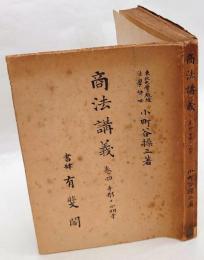 東北大學教授
法學博士
小町谷操三著
商法講義
卷四 手形・小切手
書肆 有斐閣
商法講義
小町谷操三著